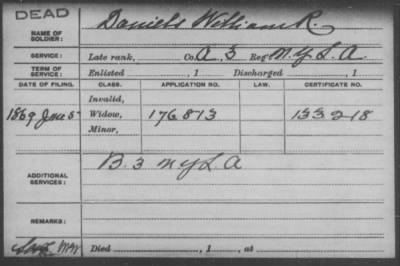 DEAD
NAME OF SOLDIER: Daniels William R.
SERVICE: Late rank, Co. A, 3 Reg't N.Y.L.A.
TERM OF SERVICE: Enlisted , 1 Discharged , 1
DATE OF FILING. CLASS. APPLICATION NO. LAW. CERTIFICATE NO.
Invalid,
1869 Widow, 176813 133218
Minor,
ADDITIONAL SERVICES: B. 3 N Y L A
REMARKS:
Died , 1 , at